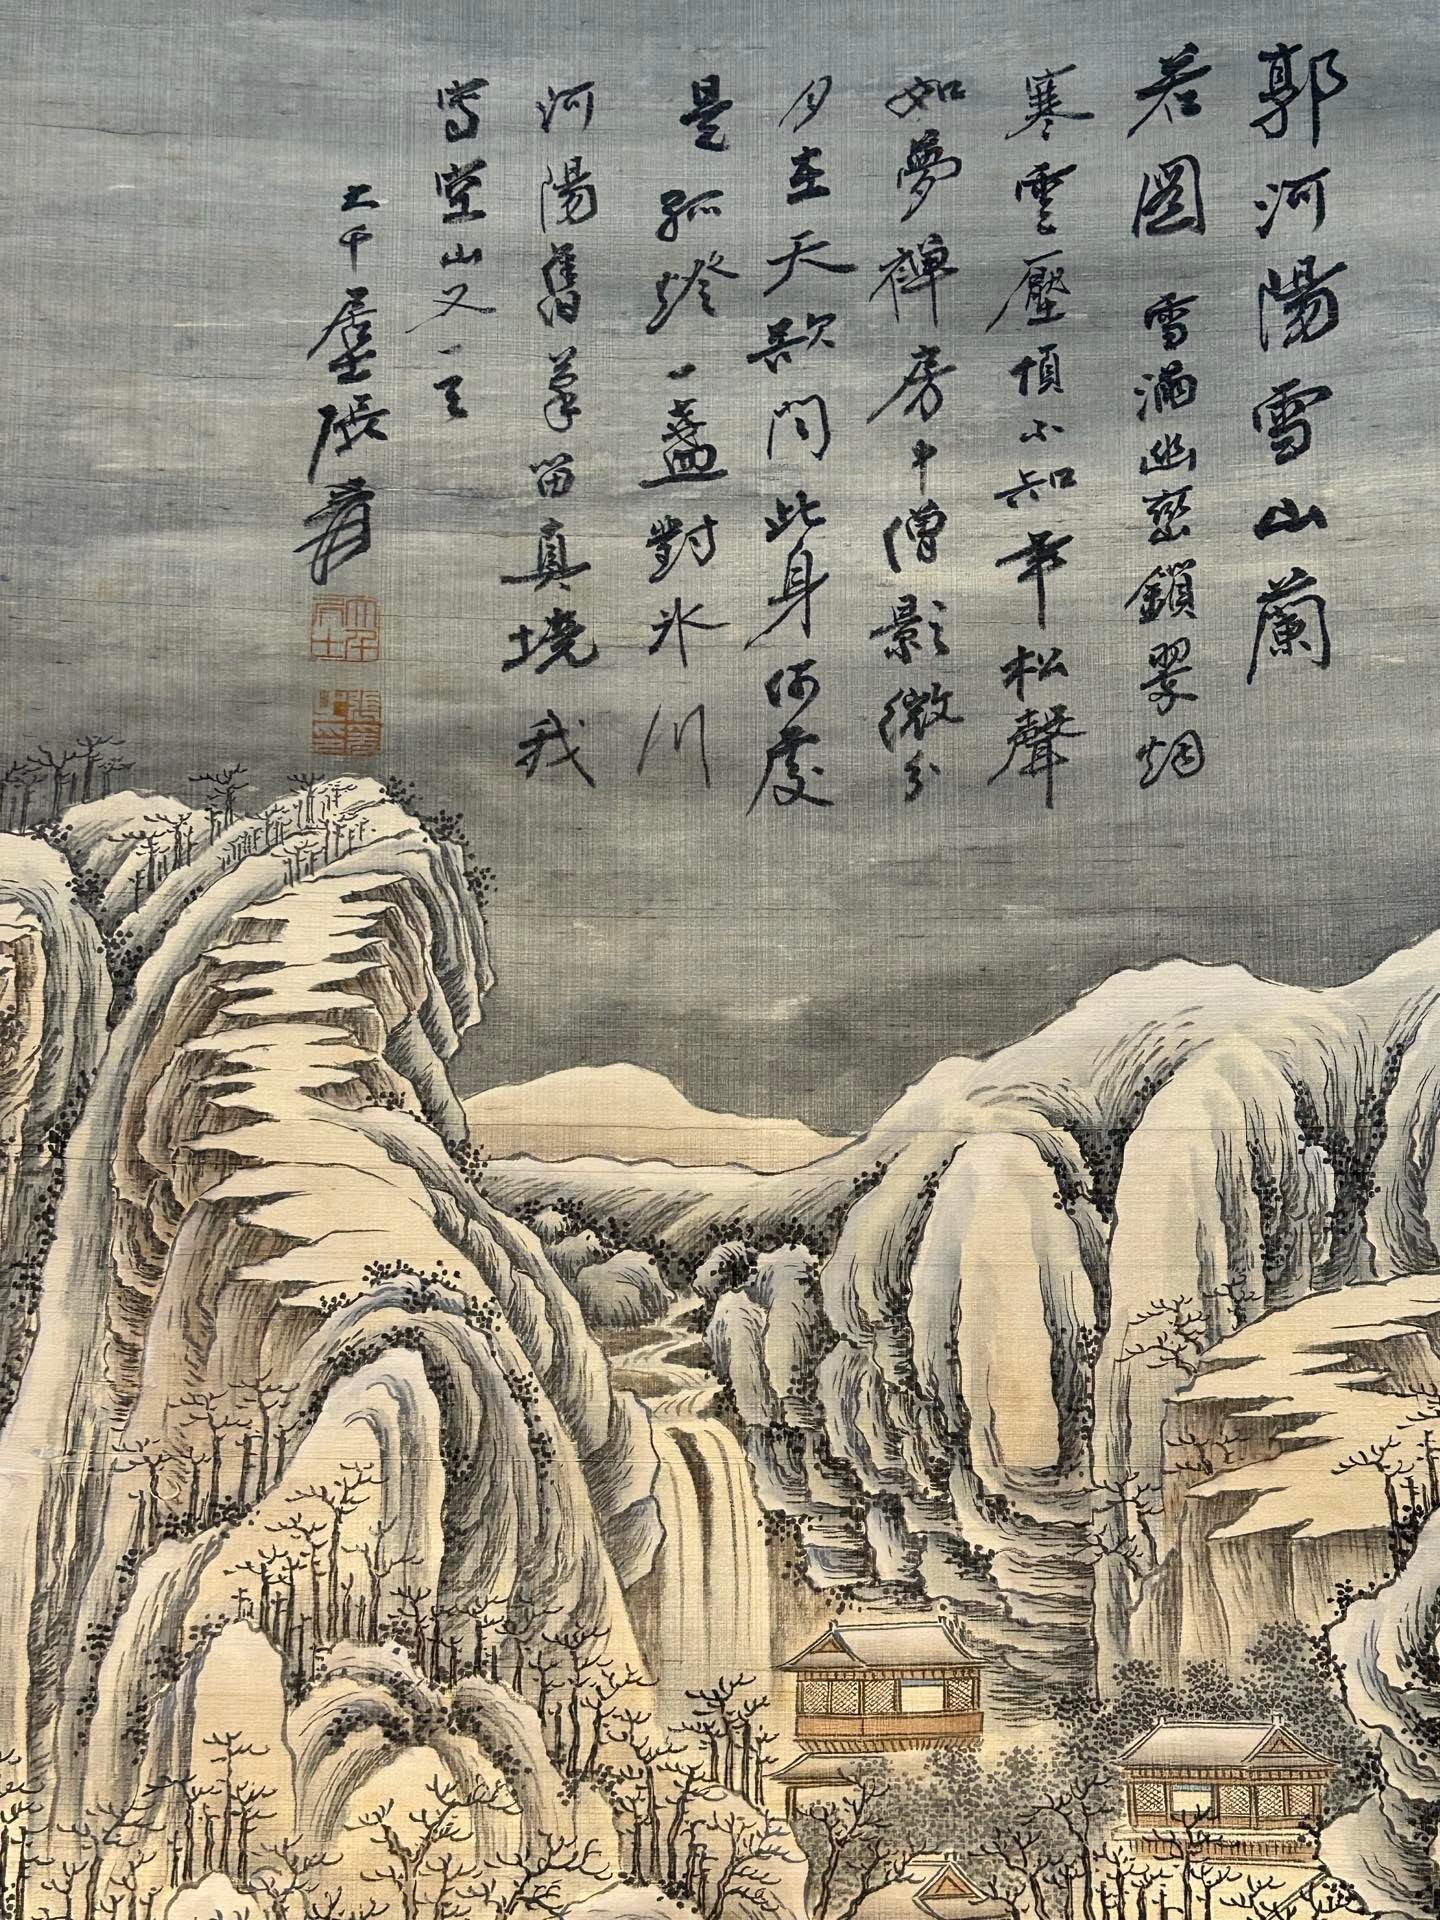 郭河陽雪山蘭
若圖 雪滿幽巒鎖翠烟
寒雲壓頂不知年松聲
如夢禪房中僧影微分
月在天欲問此身何處
是孤燈一盞對冰川
河陽舊筆留真境我
寫空山又一
大千居士張爰